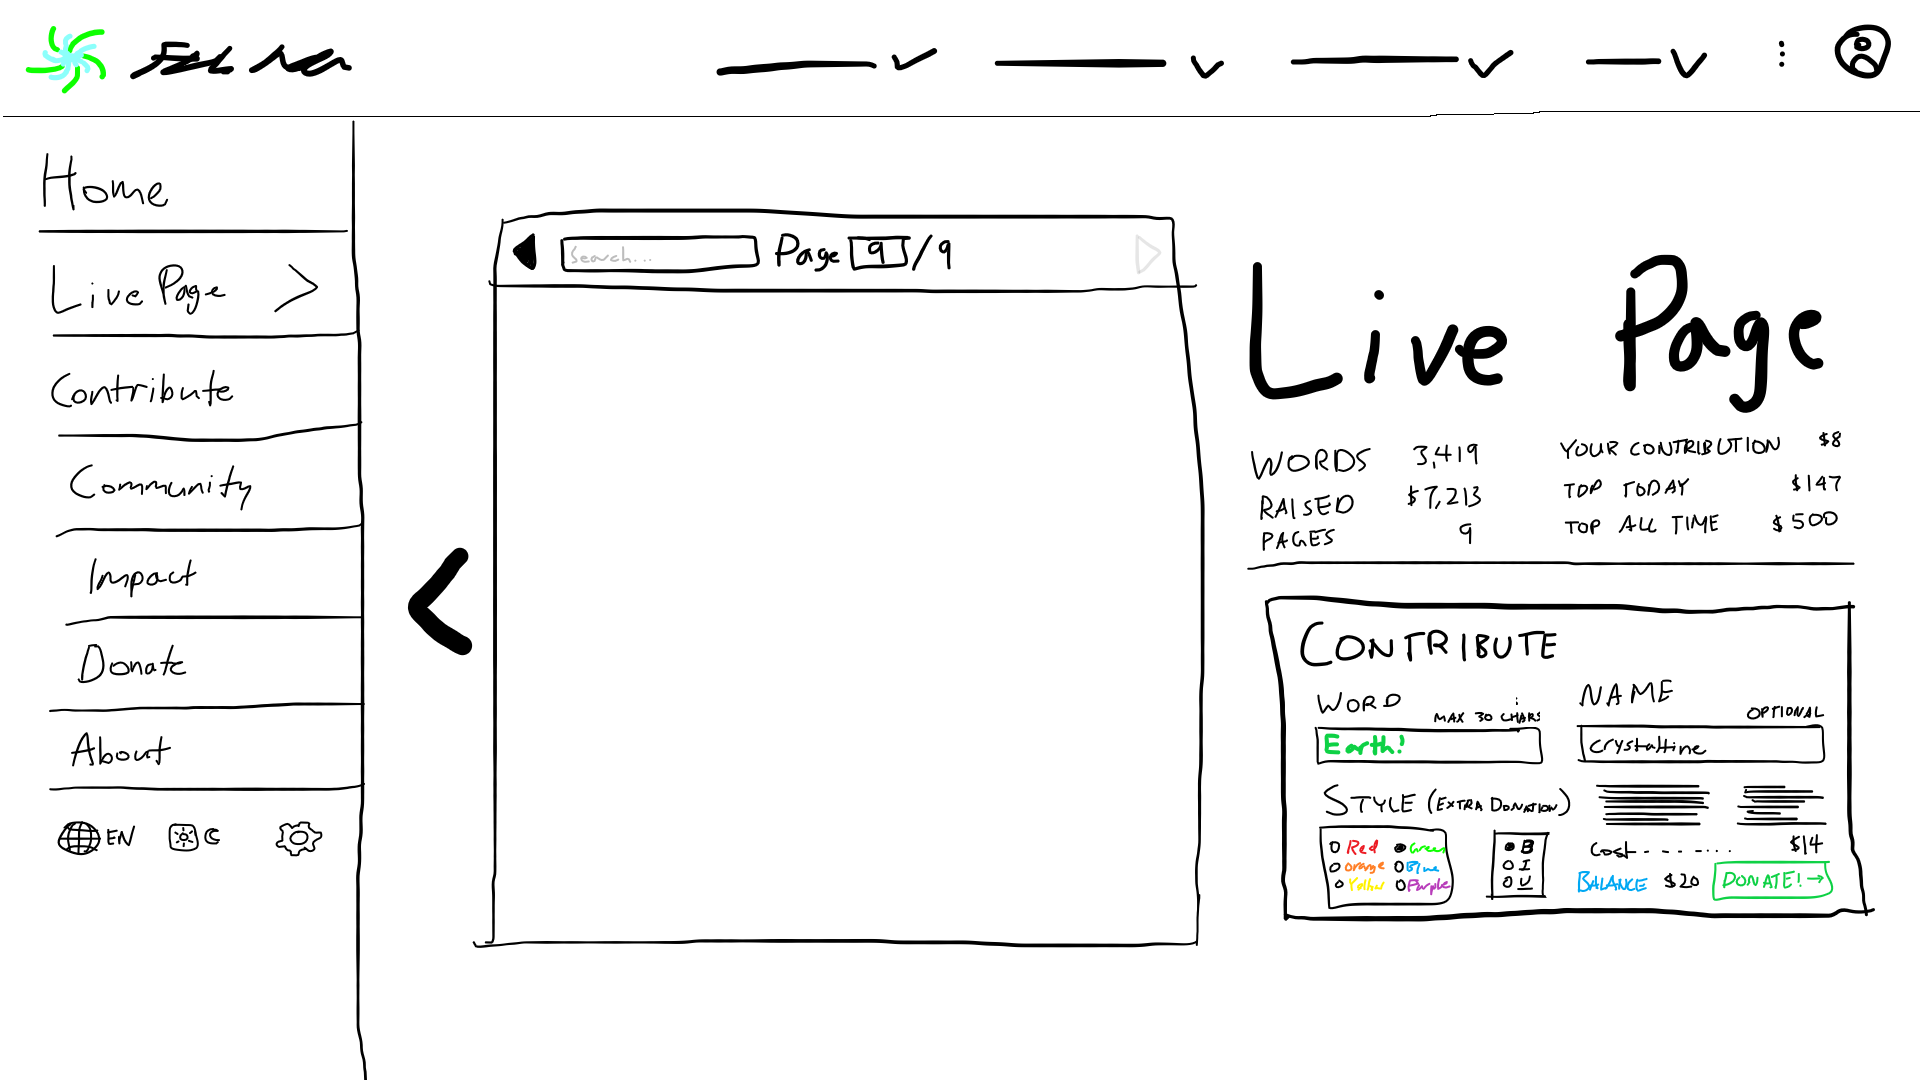 Home
Live Page >
Contribute
Community
Impact
Donate
About
EN
Search...
Page 9/9
Live Page
WORDS 3,419
RAISED $7,213
PAGES 9
YOUR CONTRIBUTION $8
TOP TODAY $147
TOP ALL TIME $500
CONTRIBUTE
WORD
MAX 30 CHARS
Earth!
NAME
OPTIONAL
crystaltine
STYLE (EXTRA DONATION)
Red Green
Orange Blue
Yellow Purple
B
I
U
Cost - - - - . . . $14
BALANCE $20 DONATE! →